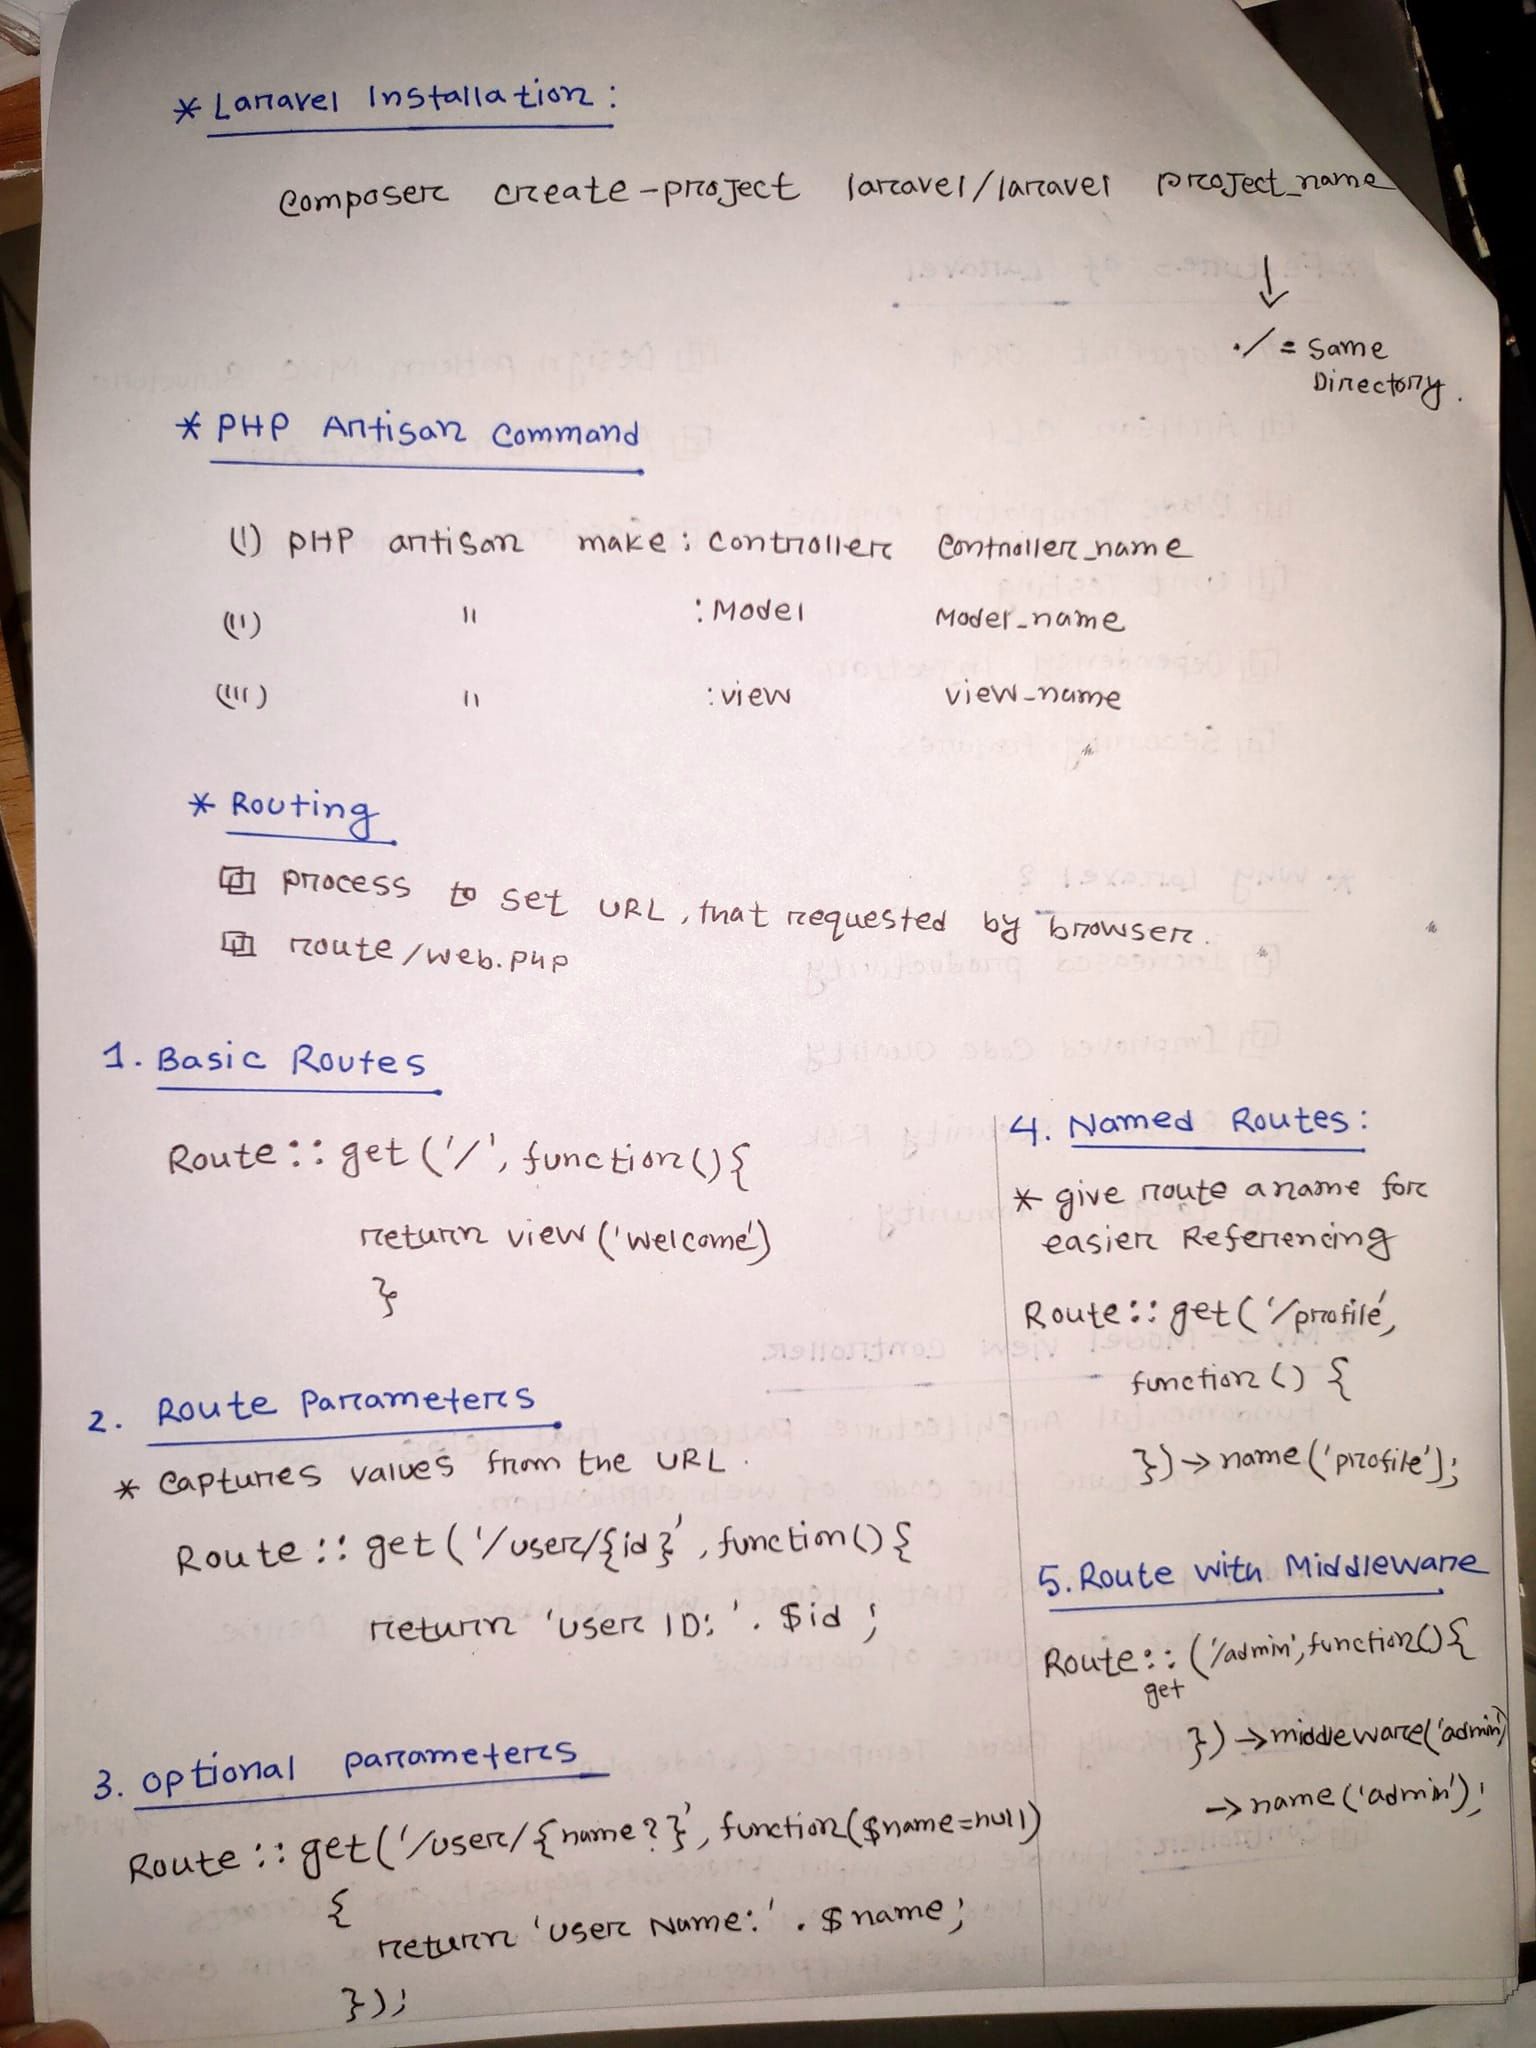 * Laravel Installation:
Composer create-project laravel/laravel project_name
↓
./ = Same
Directory.
* PHP Artisan Command
(I) PHP artisan make : Controller Controller_name
(II) " : Model Model_name
(III) " : view view_name
* Routing
process to set URL, that requested by browser.
route/web.php
1. Basic Routes
Route:: get ('/', function(){
return view ('welcome')
}
2. Route Parameters
* Captures values from the URL.
Route:: get ('/user/{id}', function(){
return 'User ID: '. $id ;
3. Optional parameters
Route:: get('/user/{name?}', function($name=null)
{
return 'User Name:' . $name;
});
4. Named Routes:
* give route a name for
easier Referencing
Route:: get('/profile',
function() {
})→name('profile');
5. Route with Middleware
Route:: ('/admin', function(){
get
})→middleware('admin')
→name('admin');